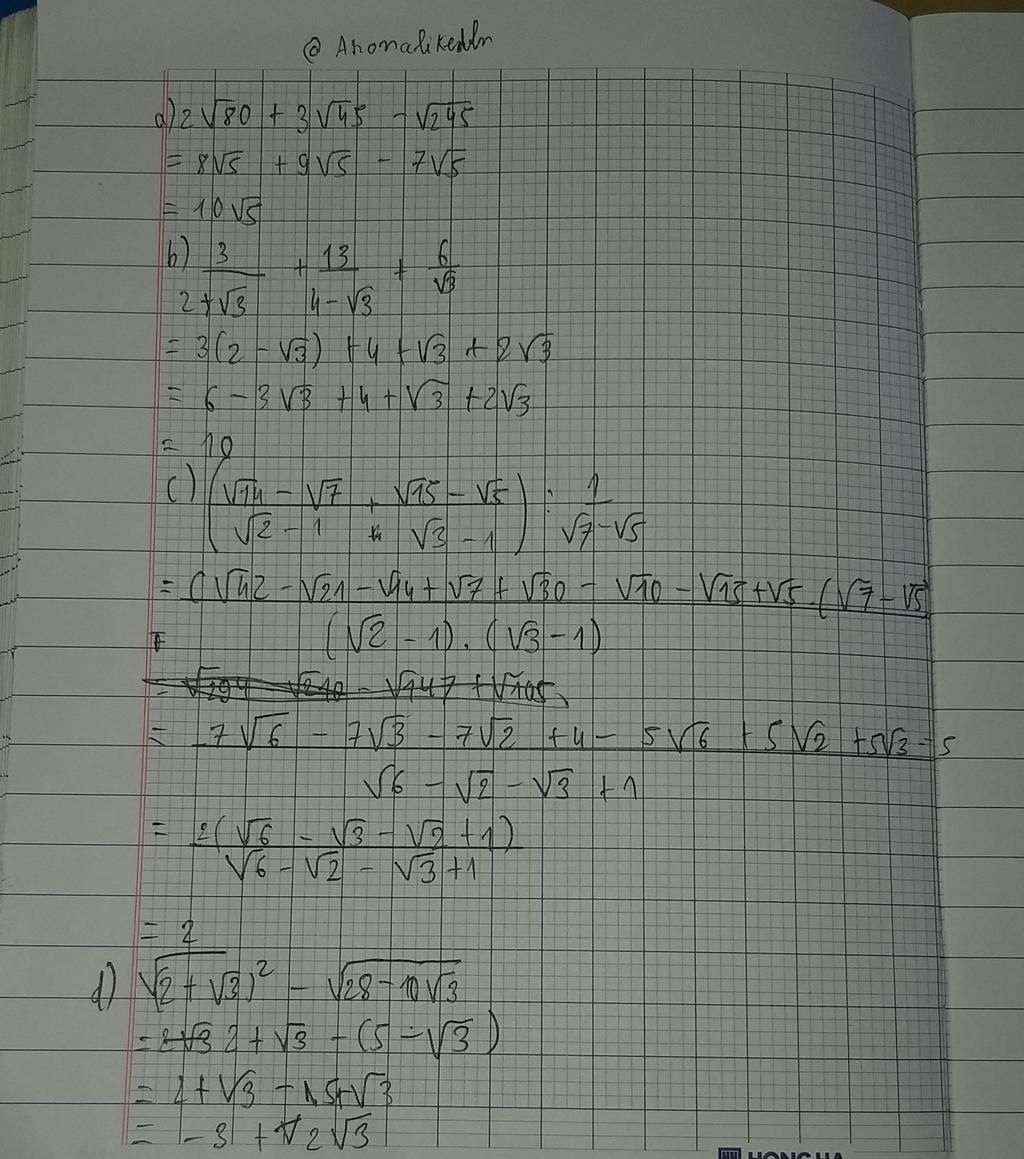 @ Anomalikedln
a) 2√80 + 3√45 - √245
= 8√5 + 9√5 - 7√5
= 10√5
b) 3/(2+√3) + 13/(4-√3) + 6/√3
= 3(2 - √3) + 4 + √3 + 2√3
= 6 - 3√3 + 4 + √3 + 2√3
= 10
c) ((√14 - √7)/(√2 - 1) + (√15 - √5)/(√3 - 1)) : 1/(√7 - √5)
= (√42 - √21 - √14 + √7 + √30 - √10 - √15 + √5 . (√7 - √5)
(√2 - 1) . (√3 - 1)
= 7√6 - 7√3 - 7√2 + 4 - 5√6 + 5√2 + 5√3 - 5
√6 - √2 - √3 + 1
= 2(√6 - √3 - √2 + 1)
√6 - √2 - √3 + 1
= 2
d) √(2 + √3)² - √(28 - 10√3)
= 2 + √3 - (5 - √3)
= 2 + √3 - 5 + √3
= -3 + 2√3
HONG HA